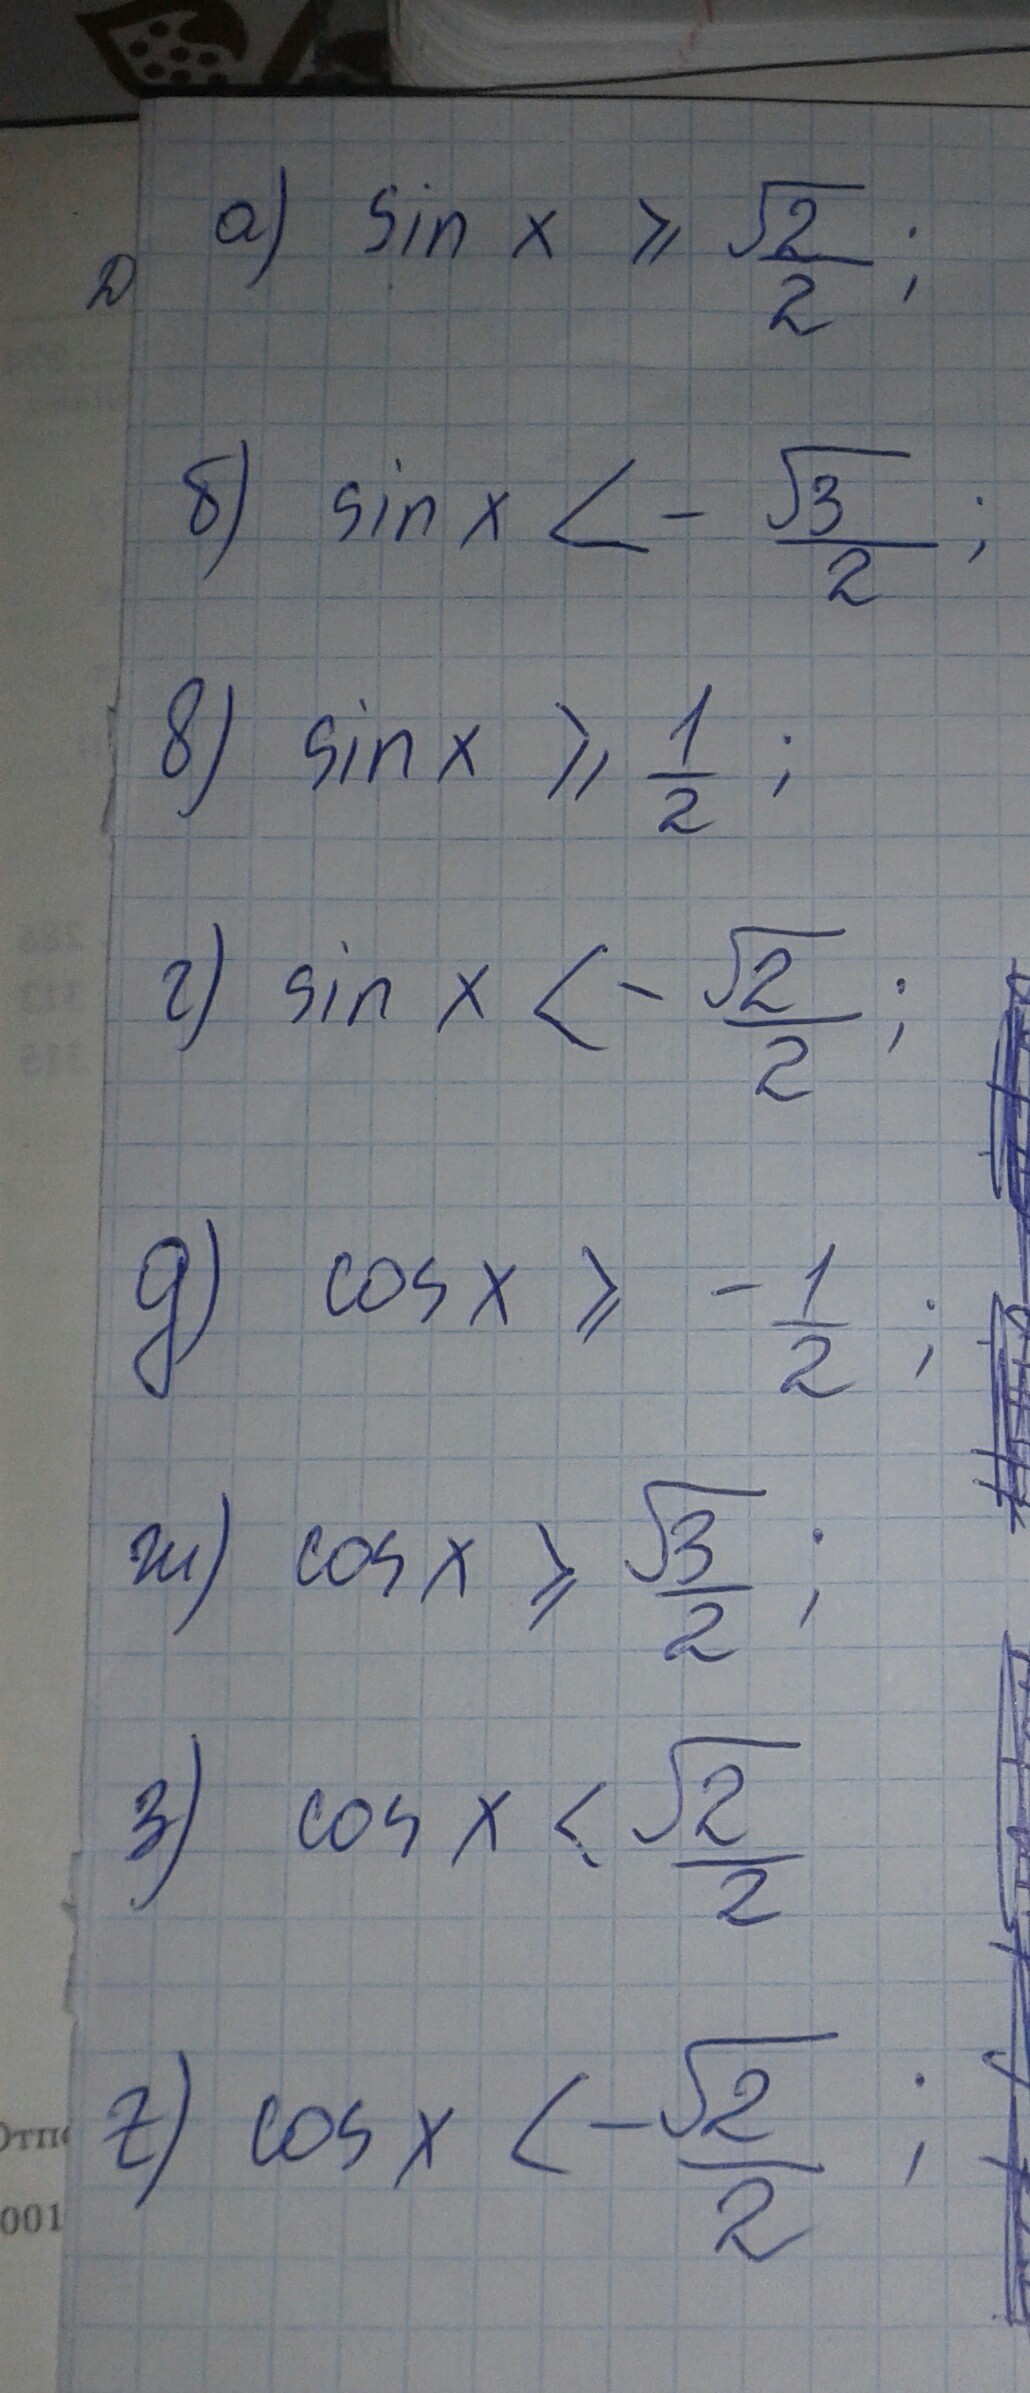 а) sin x ⩾ √2/2 ;
б) sin x < - √3/2 ;
в) sin x ⩾ 1/2 ;
г) sin x < - √2/2 ;
д) cos x ⩾ - 1/2 ;
ж) cos x ⩾ √3/2 ;
з) cos x < √2/2
z) cos x < - √2/2 ;
286
313
315
Отп
001